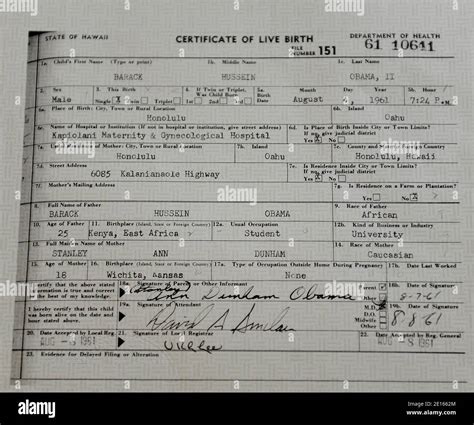 STATE OF HAWAII CERTIFICATE OF LIVE BIRTH DEPARTMENT OF HEALTH
FILE NUMBER 151 61 10641
1a. Child's First Name (Type or print) 1b. Middle Name 1c. Last Name
BARACK HUSSEIN OBAMA, II
2. Sex 3. This Birth 4. If Twin or Triplet, Was Child Born 5a. Birth Date Month Day Year 5b. Hour
Male Single X Twin Triplet 1st 2nd 3rd August 4, 1961 7:24 P.M.
6a. Place of Birth: City, Town or Rural Location 6b. Island
Honolulu Oahu
6c. Name of Hospital or Institution (If not in hospital or institution, give street address) 6d. Is Place of Birth Inside City or Town Limits? If no, give judicial district
Kapiolani Maternity & Gynecological Hospital Yes X No
7a. Usual Residence of Mother: City, Town or Rural Location 7b. Island 7c. County and State or Foreign Country
Honolulu Oahu Honolulu, Hawaii
7d. Street Address 7e. Is Residence Inside City or Town Limits? If no, give judicial district
6085 Kalanianaole Highway Yes X No
7f. Mother's Mailing Address 7g. Is Residence on a Farm or Plantation?
Yes No X
8. Full Name of Father 9. Race of Father
BARACK HUSSEIN OBAMA African
10. Age of Father 11. Birthplace (Island, State or Foreign Country) 12a. Usual Occupation 12b. Kind of Business or Industry
25 Kenya, East Africa Student University
13. Full Maiden Name of Mother 14. Race of Mother
STANLEY ANN DUNHAM Caucasian
15. Age of Mother 16. Birthplace (Island, State or Foreign Country) 17a. Type of Occupation Outside Home During Pregnancy 17b. Date Last Worked
18 Wichita, Kansas None
I certify that the above stated information is true and correct to the best of my knowledge. 18a. Signature of Parent or Other Informant Parent Other 18b. Date of Signature
(Stanley) Ann Dunham Obama 8-7-61
I hereby certify that this child was born alive on the date and hour stated above. 19a. Signature of Attendant M.D. D.O. Midwife Other 19b. Date of Signature
8 8 61
20. Date Accepted by Local Reg. 21. Signature of Local Registrar 22. Date Accepted by Reg. General
AUG -8 1961 U K L Lee AUG -8 1961
23. Evidence for Delayed Filing or Alteration
alamy
Image ID: 2E1662M
www.alamy.com